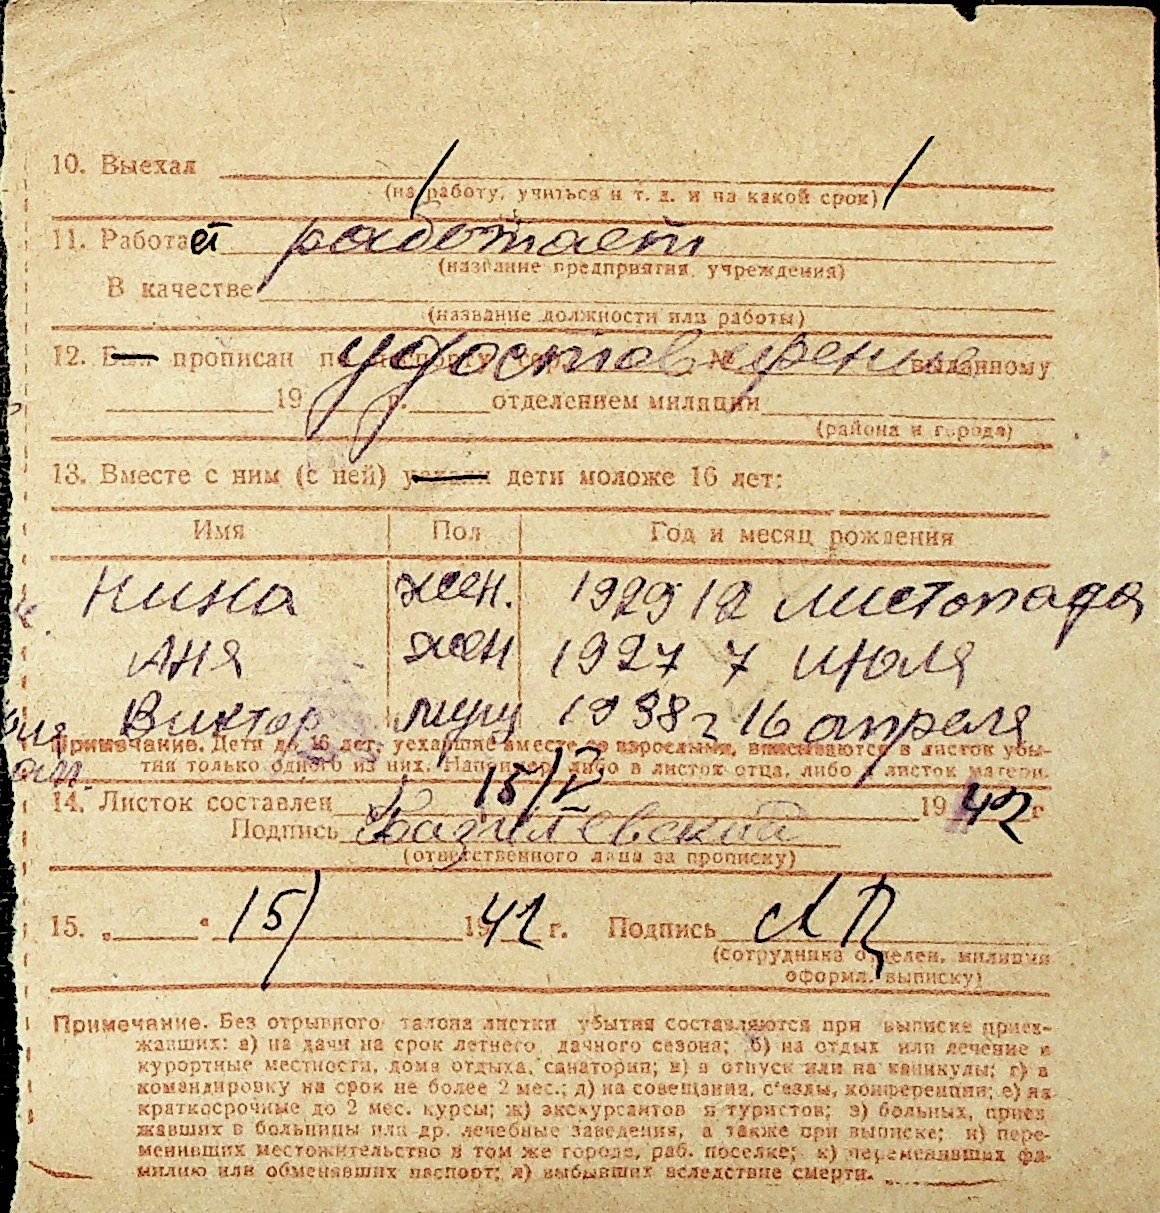 10. Выехал
(на работу, учиться и т. д. и на какой срок)
11. Работает работает
(название предприятия, учреждения)
В качестве
(название должности или работы)
12. прописан по паспорту удостоверение № выданному
19 г. отделением милиции
(района и города)
13. Вместе с ним (с ней) уехали дети моложе 16 лет:
Имя Пол Год и месяц рождения
Нина жен. 1929 12 листопада
Аня жен 1927 7 июля
Виктор муж 1938 г 16 апреля
Примечание. Дети до 16 лет, уехавшие вместе со взрослыми, вписываются в листок убы-
тия только одного из них. Например либо в листок отца, либо в листок матери.
14. Листок составлен 15/V 1942 г
Подпись Базилевский
(ответственного лица за прописку)
15. „ “ 15/ 1942 г. Подпись
(сотрудника отделен. милиции
оформл. выписку)
Примечание. Без отрывного талона листки убытия составляются при выписке приез-
жавших: а) на дачи на срок летнего дачного сезона; б) на отдых или лечение в
курортные местности, дома отдыха, санатории; в) в отпуск или на каникулы; г) в
командировку на срок не более 2 мес.; д) на совещания, с'езды, конференции; е) на
краткосрочные до 2 мес. курсы; ж) экскурсантов и туристов; з) больных, приез
жавших в больницы или др. лечебные заведения, а также при выписке; и) пере-
менивших местожительство в том же городе, раб. поселке; к) переменивших фа-
милию или обменявших паспорт; л) выбывших вследствие смерти.